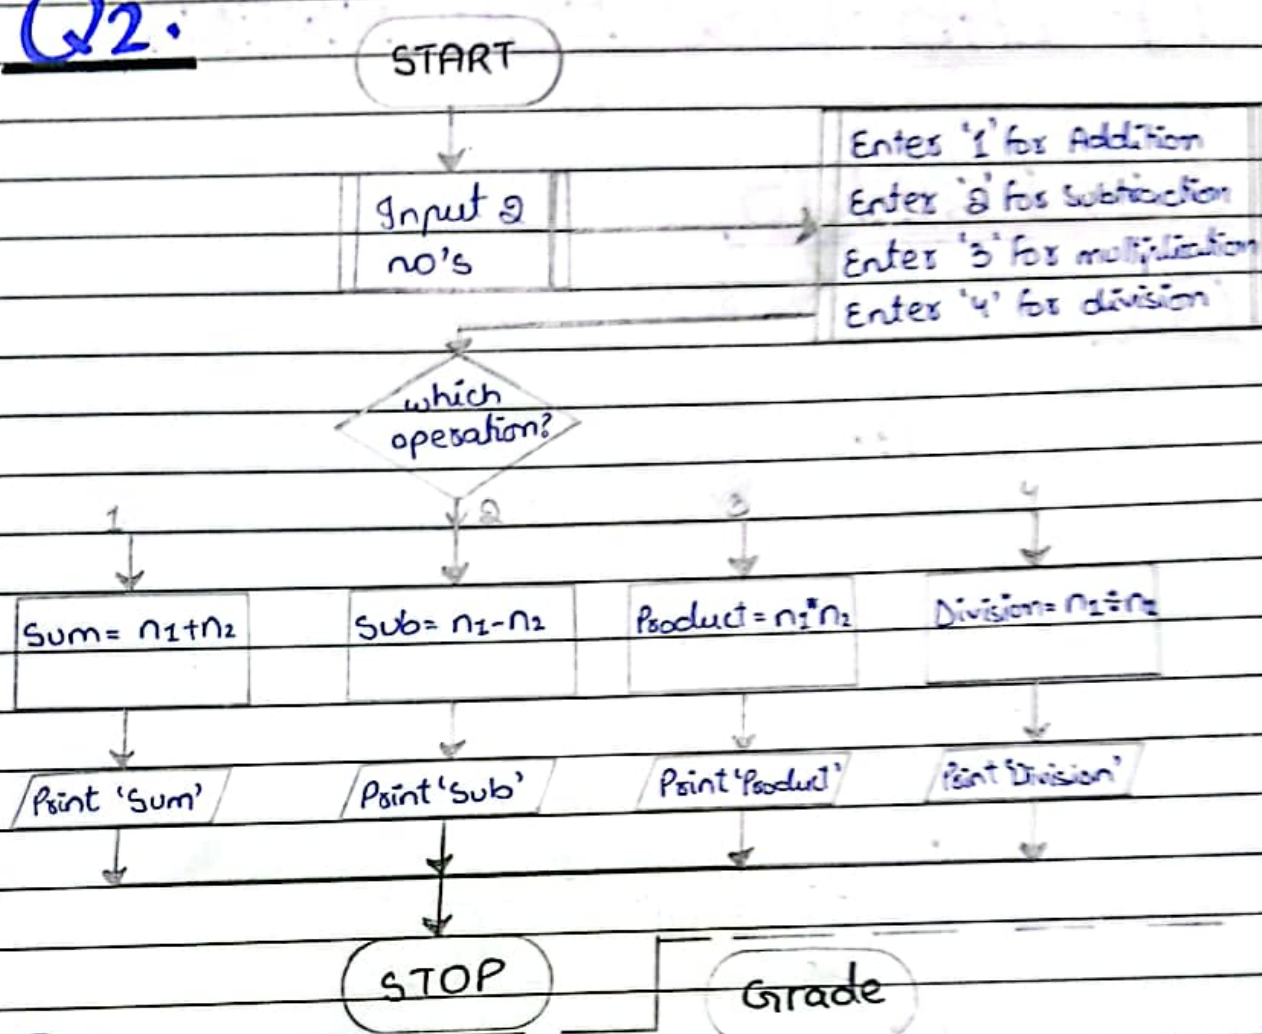 Q2.
START
Input 2
no's
Enter '1' for Addition
Enter '2' for Subtraction
Enter '3' for multiplication
Enter '4' for division
which
operation?
1
2
3
4
Sum= n1+n2
Sub= n1-n2
Product= n1*n2
Division= n1÷n2
Print 'Sum'
Print 'Sub'
Print 'Product'
Print 'Division'
STOP
Grade